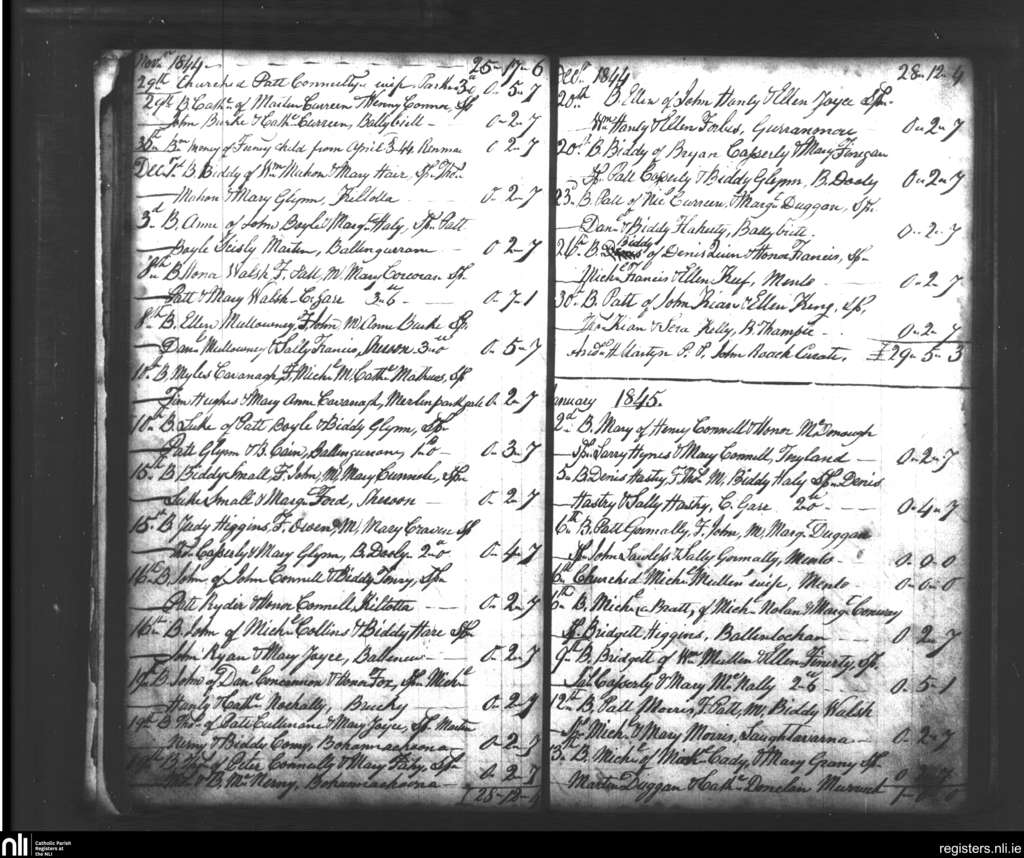 Novr. 1844 25-17-6
29th Churched Patt Connelly's wife Park 3s 0-5-7
29th B. Cathe. of Martin Curreen & Henny Connor, Sp
John Burke & Cathe. Curreen, Ballybritt 0-2-7
30th Bm. money of Furey child from April 3-44 Renmo 0 2-7
Decr. 1st B. Biddy of Wm. Mahon & Mary Hair, Sp. Thos.
Mahon & Mary Glynn, Killotta 0-2-7
3d B. Anne of John Boyle & Margt. Haly, Sp. Patt
Boyle Martin, Ballingurrane 0 2-7
8th B. Hona Walsh F. Patt M. Mary Corcoran Sp.
Patt & Mary Walsh C. Gare 3s-6 0-7-1
8th B. Ellen Mullowney, F. John, M. Anne Burke Sp.
Danl. Mullowney & Sally Francis, 3-0 0-5-7
10th B. Myles Cavanagh, F. Michl. M. Cathe. Mathews, Sp
Tim Hughes & Mary Anne Cavanagh, Merlinpark gate 0-2-7
10th B. Luke of Patt Boyle & Biddy Glynn, Sp.
Patt Glynn & B. Cain, Ballinguroon, 1-0 0-3-7
15th B. Biddy Small, F. John, M. Mary Sp.
Luke Small & Margt. Ford, 0-2-7
15th B. Judy Higgins, F. Owen, M. Mary Craven Sp
Thos. Casserly & Mary Glynn, B. Dooly 2s-0 0-4-7
16th B. John of John Connell & Biddy Sp.
Patt Ryder & Honor Connell, Kiltotta 0-2-7
16th B. John of Michl. Collins & Biddy Hare Sp.
John Ryan & Mary Joyce, 0-2-7
19th B. John of Danl. Concannon & Honor Fox, Sp. Michl.
Hanly & Cathe. Brucky 0-2-7
19th B. Thos. of Patt Cullinane & Mary Joyce, Sp. Martin
Nerny & Biddy Bohannachoona 0-2-7
19th B. of Peter Connelly & Mary Sp.
& B. McNerny, Bohannachoona 0 2 7
£28-12-4
Decr. 1844 28-12-4
20th B. Ellen of John Hanly & Ellen Joyce Sp.
Wm. Hanly & Ellen Forbes, Gurranmore 0-2-7
20th B. Biddy of Bryan Casserly & Mary Finegan
Sp. Patt Casserly & Biddy Glynn, B. Dooly 0-2-7
23d B. Patt of Curreen & Margt. Duggan, Sp.
Danl. & Biddy Flaherty, Ballybritt 0-2-7
Biddy
26th B. of Denis Quinn & Honor Francis, Sp.
Michl. Francis & Ellen Menlo 0-2-7
30th B. Patt of John Kian & Ellen King, Sp.
Thos. Kian & Kelly, B. 0-2-7
Andw. H. Martyn P.P. John Roach Curate. £29-5-3
January 1845.
2d B. Mary of Henry Connell & Honor McDonough
Sp. Larry Hynes & Mary Connell, 0-2-7
5th B. Denis Hasty, F. Thos. M. Biddy Haly Sp. Denis
Hasty & Sally Hasty, C. Gare 2s-0 0-4-7
6th B. Patt Gormally, F. John, M. Margt. Duggan
Sp. John Lawless & Sally Gormally, Menlo 0-0-0
6th Churched Michl. Mullen wife, Menlo 0-0-0
6th B. Michl. of Michl. Nolan & Margt. Conway
Sp. Bridgett Higgins, Ballinlochan 0 2-7
9th B. Bridgett of Wm. Mullen & Ellen Finerty, Sp.
Jas. Casserly & Mary McNally 2s-6 0-5-1
12th B. Patt Morris, F. Patt, M. Biddy Walsh
Sp. Michl. & Mary Morris, Laughtavarna 0-2-7
13th B. Michl. of Cady, & Mary Grany Sp.
Martin Duggan & Cathe. Donelan
nli Catholic Parish
Registers at
the NLI
registers.nli.ie